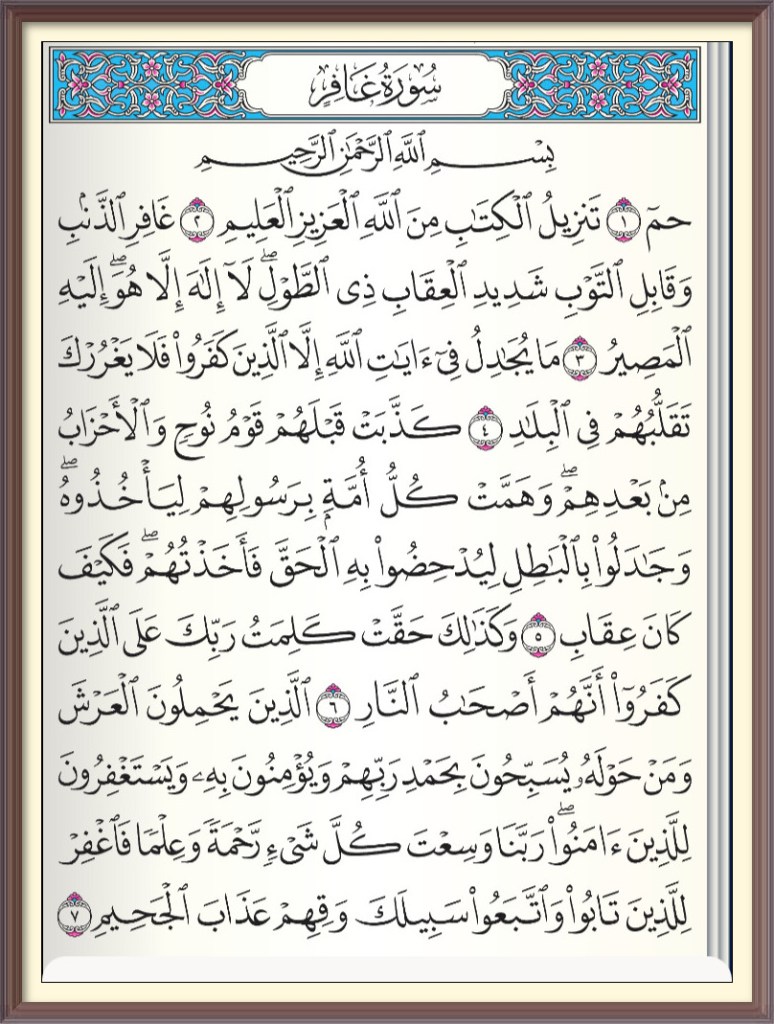 سُورَةُ غَافِرٍ
بِسْمِ ٱللَّهِ ٱلرَّحْمَٰنِ ٱلرَّحِيمِ
حمٓ ١ تَنزِيلُ ٱلْكِتَٰبِ مِنَ ٱللَّهِ ٱلْعَزِيزِ ٱلْعَلِيمِ ٢ غَافِرِ ٱلذَّنۢبِ
وَقَابِلِ ٱلتَّوْبِ شَدِيدِ ٱلْعِقَابِ ذِى ٱلطَّوْلِۖ لَآ إِلَٰهَ إِلَّا هُوَۖ إِلَيْهِ
ٱلْمَصِيرُ ٣ مَا يُجَٰدِلُ فِىٓ ءَايَٰتِ ٱللَّهِ إِلَّا ٱلَّذِينَ كَفَرُوا۟ فَلَا يَغْرُرْكَ
تَقَلُّبُهُمْ فِى ٱلْبِلَٰدِ ٤ كَذَّبَتْ قَبْلَهُمْ قَوْمُ نُوحٍ وَٱلْأَحْزَابُ
مِنۢ بَعْدِهِمْۖ وَهَمَّتْ كُلُّ أُمَّةٍۭ بِرَسُولِهِمْ لِيَأْخُذُوهُۖ
وَجَٰدَلُوا۟ بِٱلْبَٰطِلِ لِيُدْحِضُوا۟ بِهِ ٱلْحَقَّ فَأَخَذْتُهُمْۖ فَكَيْفَ
كَانَ عِقَابِ ٥ وَكَذَٰلِكَ حَقَّتْ كَلِمَتُ رَبِّكَ عَلَى ٱلَّذِينَ
كَفَرُوٓا۟ أَنَّهُمْ أَصْحَٰبُ ٱلنَّارِ ٦ ٱلَّذِينَ يَحْمِلُونَ ٱلْعَرْشَ
وَمَنْ حَوْلَهُۥ يُسَبِّحُونَ بِحَمْدِ رَبِّهِمْ وَيُؤْمِنُونَ بِهِۦ وَيَسْتَغْفِرُونَ
لِلَّذِينَ ءَامَنُوا۟ۖ رَبَّنَا وَسِعْتَ كُلَّ شَىْءٍ رَّحْمَةً وَعِلْمًا فَٱغْفِرْ
لِلَّذِينَ تَابُوا۟ وَٱتَّبَعُوا۟ سَبِيلَكَ وَقِهِمْ عَذَابَ ٱلْجَحِيمِ ٧